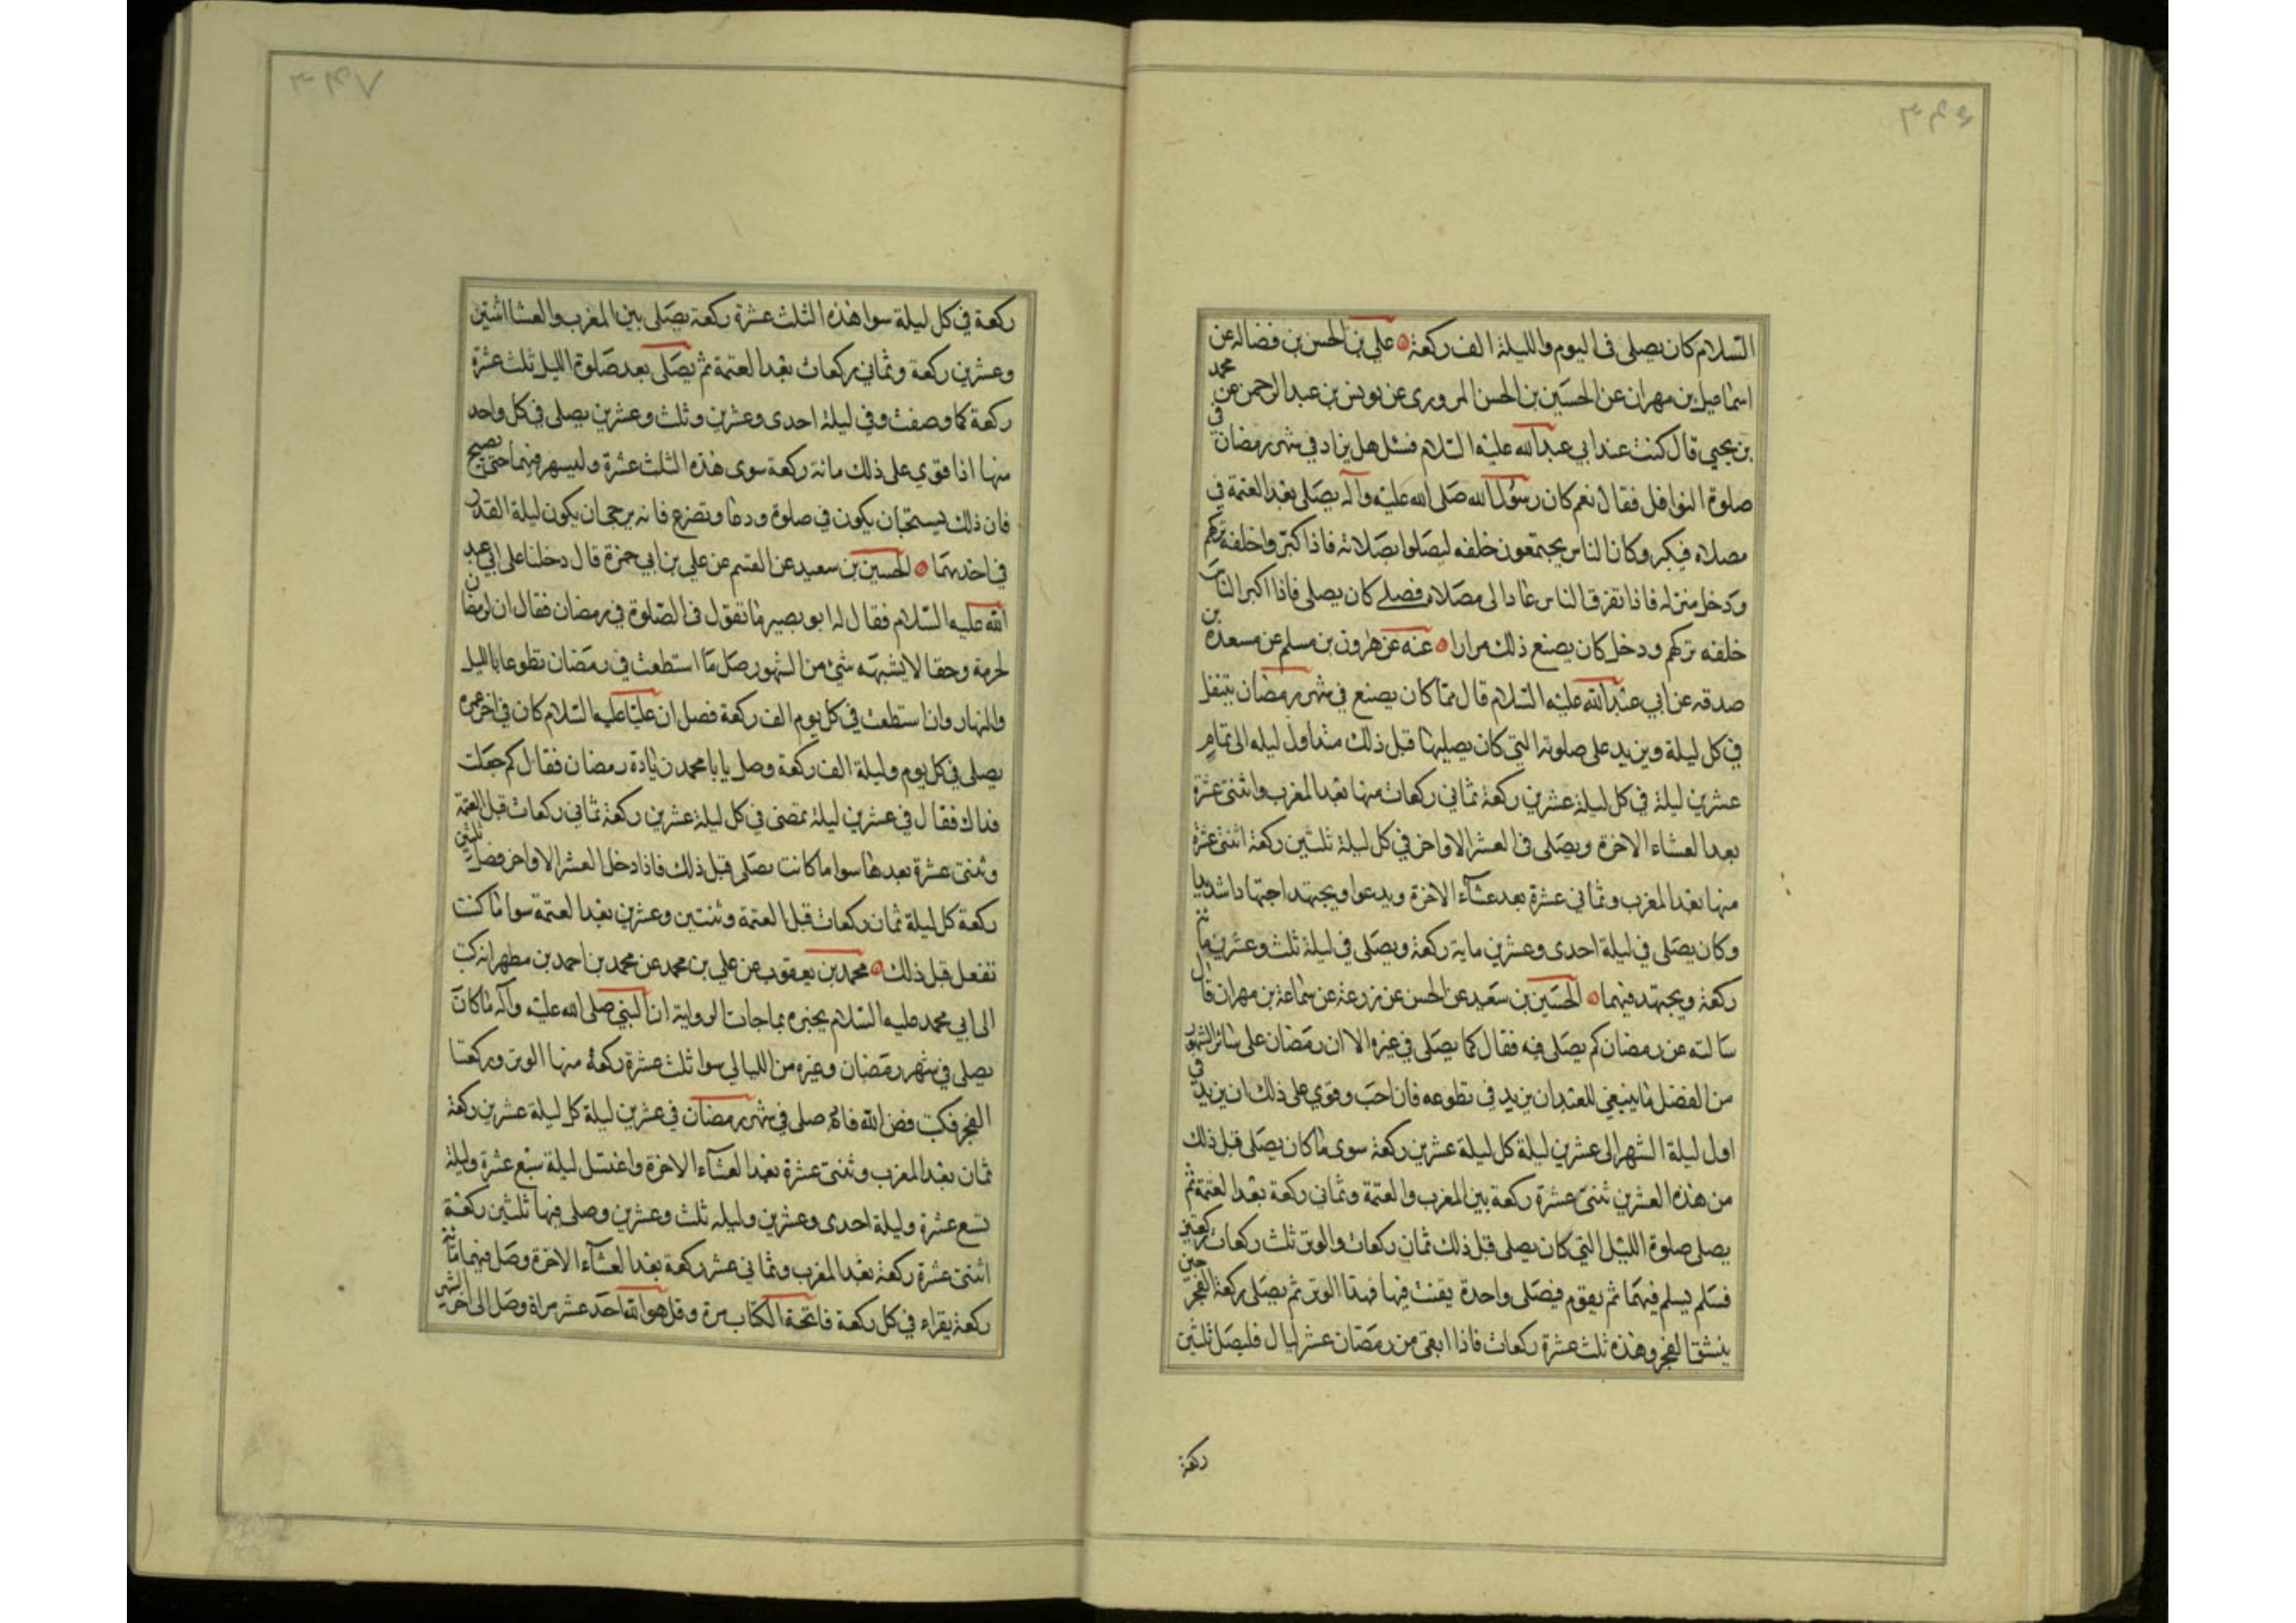 السلام كان يصلى فى اليوم والليلة الف ركعة علي بن الحسن بن فضاله عن
اسماعيل بن مهران عن الحسين بن الحسن المروري عن يونس بن عبد الرحمن عن محمد
بن يحيى قال كنت عند ابي عبد الله عليه السلام فسئل هل يزاد في شهر رمضان في
صلوة النوافل فقال نعم كان رسول الله صلى الله عليه وآله يصلى بعد العتمة في
مصلاه فيكبر وكان الناس يجتمعون خلفه ليصلوا بصلاته فاذا كبر واخلفه تركهم
ودخل منزله فاذا تفرق الناس عاد الى مصلاه فصلى كان يصلى فاذا اكبر الناس
خلفه تركهم ودخل كان يصنع ذلك مرارا عنه عن هرون بن مسلم عن مسعدة بن
صدقه عن ابي عبد الله عليه السلام قال مما كان يصنع في شهر رمضان يتنفل
في كل ليلة ويزيد على صلوته التي كان يصليها قبل ذلك منذ اول ليله الى تمام
عشرين ليلة في كل ليلة عشرين ركعة ثماني ركعات منها بعد المغرب واثنتى عشرة
بعد العشاء الاخرة ويصلى فى العشر الاواخر في كل ليلة ثلثين ركعة اثنتى عشرة
منها بعد المغرب وثماني عشرة بعد عشاء الاخرة ويدعوا ويجتهد اجتهادا شديدا
وكان يصلى في ليلة احدى وعشرين ماية ركعة ويصلى في ليلة ثلث وعشرين مائة
ركعة ويجتهد فيهما الحسين بن سعيد عن الحسن عن زرعة عن سماعة بن مهران قال
سالته عن رمضان كم يصلى فيه فقال كما يصلى في غيره الا ان رمضان على سائر الشهور
من الفضل ما ينبغي للعبد ان يزيد في تطوعه فان احب وقوي على ذلك ان يزيد في
اول ليلة الشهر الى عشرين ليلة كل ليلة عشرين ركعة سوى ما كان يصلى قبل ذلك
من هذه العشرين ثنتى عشرة ركعة بين المغرب والعتمة وثماني ركعة بعد العتمة ثم
يصلى صلوة الليل التي كان يصلى قبل ذلك ثمان ركعات والوتر ثلث ركعات ركعتين
فسلم يسلم فيهما ثم يقوم فيصلى واحدة يقنت فيها فهذا الوتر ثم يصلى ركعة الفجر حين
ينشق الفجر وهذه ثلث عشرة ركعات فاذا ابقى من رمضان عشر ليال فليصل ثلثين
ركعة
ركعة في كل ليلة سوا هذه الثلث عشرة ركعة يصلى بين المغرب والعشا اثنتين
وعشرين ركعة وثماني ركعات بعد العتمة ثم يصلى بعد صلوة الليل ثلث عشرة
ركعة كما وصفت وفي ليلة احدى وعشرين وثلث وعشرين يصلى في كل واحد
منها اذا قوي على ذلك مائة ركعة سوى هذه الثلث عشرة وليسهر فيهما حتى يصبح
فان ذلك يستحب ان يكون في صلوة ودعا وتضرع فانه يرجى ان يكون ليلة القدر
في احديهما الحسين بن سعيد عن القسم عن علي بن ابي حمزة قال دخلنا على ابي عبد
الله عليه السلام فقال له ابو بصير ما تقول فى الصلوة في رمضان فقال ان لرمضان
لحرمة وحقا لا يشبهه شئ من الشهور صل ما استطعت في رمضان تطوعا بالليل
والنهار وان استطعت في كل يوم الف ركعة فصل ان عليا عليه السلام كان في اخر عمره
يصلى في كل يوم وليلة الف ركعة وصل يا با محمد زيادة رمضان فقال كم جعلت
فداك فقال في عشرين ليلة تمضى في كل ليلة عشرين ركعة ثماني ركعات قبل العتمة
وثنتى عشرة بعدها سوا ما كانت يصلى قبل ذلك فاذا دخل العشر الاواخر فصل ثلثين
ركعة كل ليلة ثمان ركعات قبل العتمة وثنتين وعشرين بعد العتمة سوا ما كنت
تفعل قبل ذلك محمد بن يعقوب عن علي بن محمد عن محمد بن احمد بن مطهر انه كتب
الى ابي محمد عليه السلام يخبره بما جات الرواية ان النبي صلى الله عليه وآله ما كان
يصلى في شهر رمضان وغيره من الليالي سوا ثلث عشرة ركعة منها الوتر وركعتا
الفجر فكتب فض الله فاه صلى في شهر رمضان في عشرين ليلة كل ليلة عشرين ركعة
ثمان بعد المغرب وثنتى عشرة بعد العشآء الاخرة واغتسل ليلة سبع عشرة وليلة
تسع عشرة وليلة احدى وعشرين وليله ثلث وعشرين وصلى فيها ثلثين ركعة
اثنتى عشرة ركعة بعد المغرب وثماني عشر ركعة بعد العشآء الاخرة وصل فيهما مائة
ركعة يقراء في كل ركعة فاتحة الكتاب مرة وقل هو الله احد عشر مراة وصل الى اخر الشهر